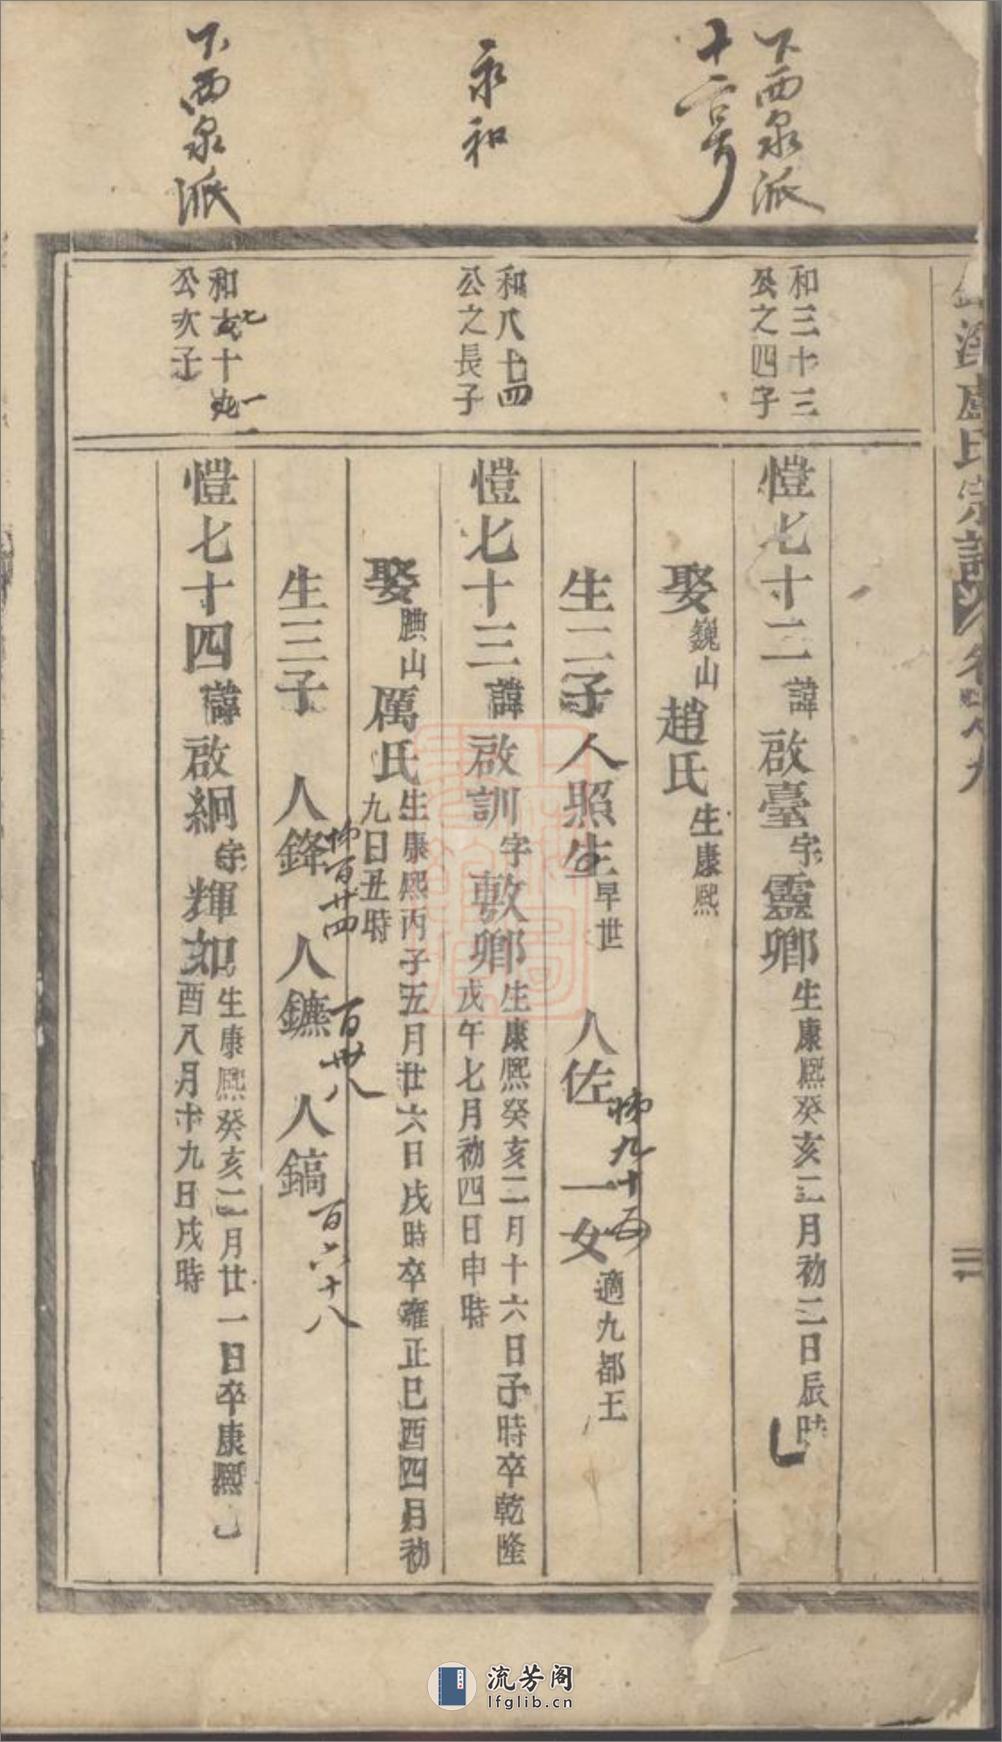 下西泉派
十二号
永和
下西泉派
盧氏宗譜
卷
和三十三
公之四子
愷七十二諱啟臺字靈卿生康熙癸亥二月初二日辰時
娶巍山趙氏生康熙
生二子人照生早世 人佐 一女適九都王
九十五
和八十四
公之長子
愷七十三諱啟訓字敷卿生康熙癸亥二月十六日子時卒乾隆
戊午七月初四日申時
娶腆山厲氏生康熙丙子五月廿六日戌時卒雍正己酉四月初
九日丑時
生三子 人鋒 人鑣 人鎬
百廿四
百卅八
百六十八
和 十
七 一
公次子
愷七十四諱啟絅字輝如生康熙癸亥二月廿一日卒康熙乙
酉八月十九日戌時
流芳阁
lfglib.cn